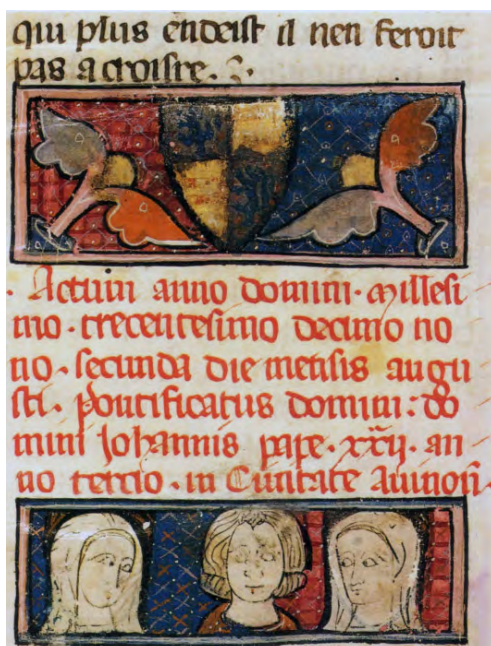 qui plus endeist il nen feroit
pas acroistre.
. Actum anno domini. Millesi
mo. trecentesimo decimo no
no. secunda die mensis augu
sti. pontificatus domini: do
mini Iohannis pape. xxij. an
no tercio. in Ciuitate auinon̄.